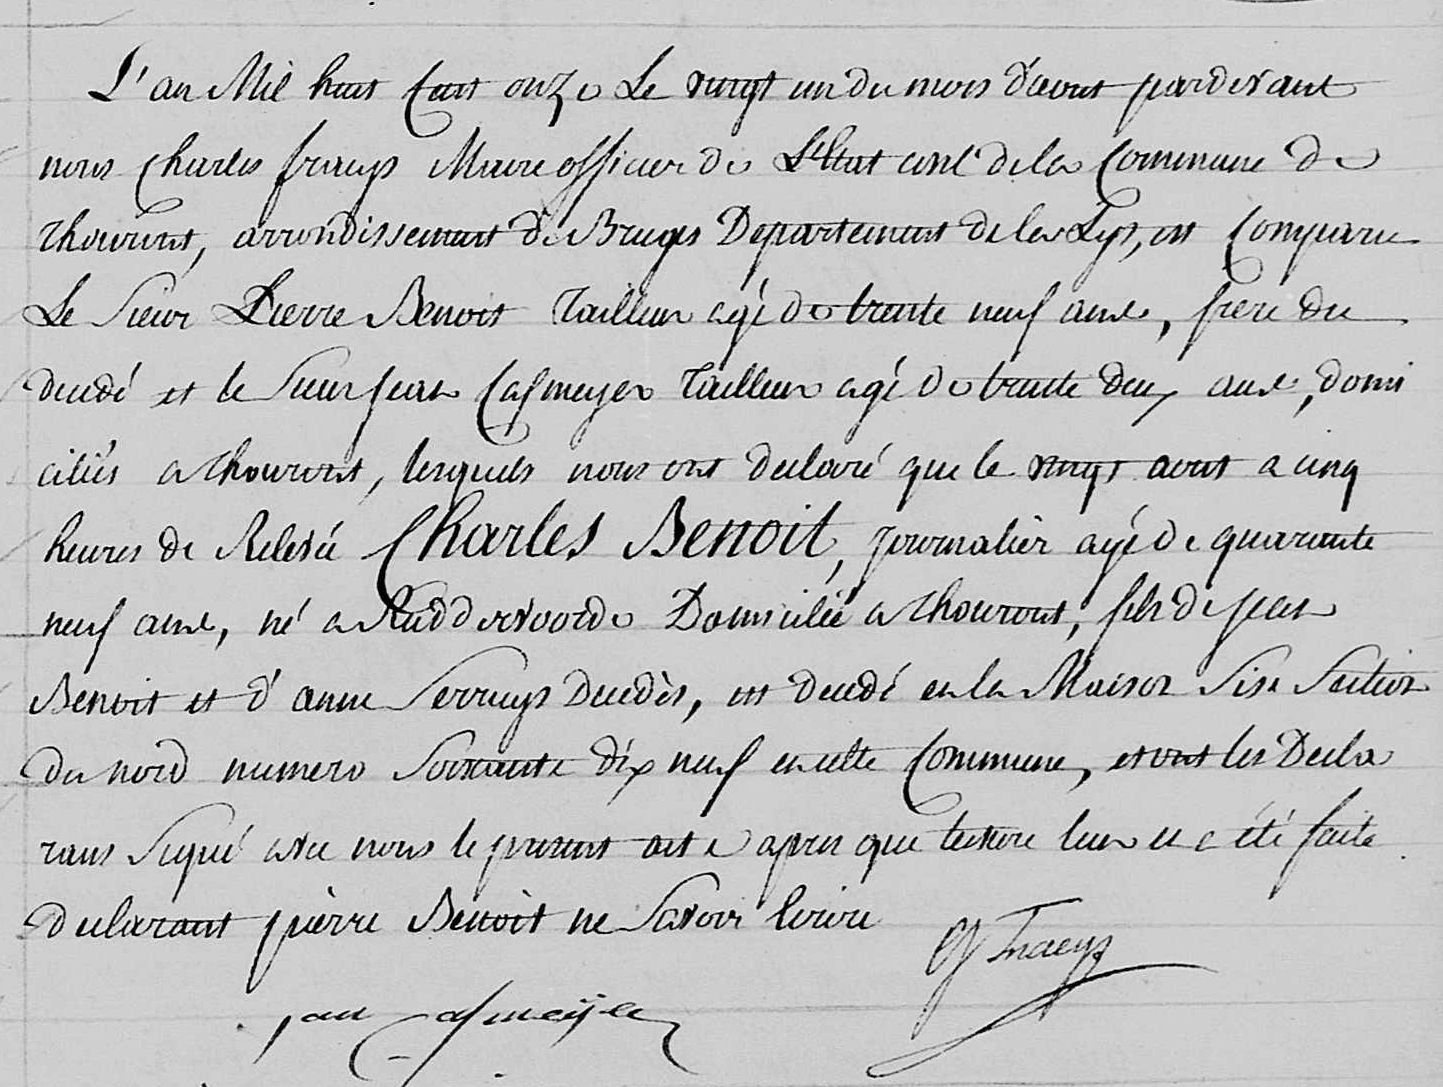 L'an Mil huit Cent onze Le vingt un du mois d'aout pardevant
nous Charles fraeys Maire officier de L'Etat civil de la Commune de
Thourout, arrondissement de Bruges Departement de la Lys, est Comparu
Le Sieur Pierre Benoit Tailleur agé de trente neuf ans, frere du
decedé et le Sieur jean Casmeyer Tailleur agé de trente deux ans, domi
ciliés a Thourout, lesquels nous ont declaré que le vingt aout a cinq
heures de Relevée Charles Benoit, journalier agé de quarante
neuf ans, né a Ruddervoorde Domicilié a Thourout, fils de jean
Benoit et d'anne Serruys Decedés, est decedé en la Maison Sise Section
du nord numero Soixante dix neuf en cette Commune, et ont les Decla
rans Signé avec nous le present acte apres que lecture leur en a été faite
declarant pierre Benoit ne Savoir Ecrire
Fraeys
jan Casmeÿer